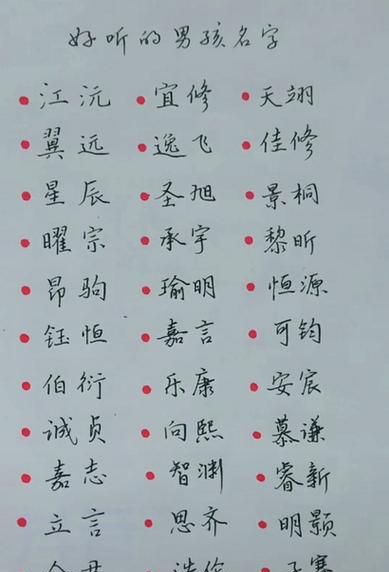 好听的男孩名字
江沅 宜修 天翊
翼远 逸飞 佳修
星辰 圣旭 景桐
曜宗 承宇 黎昕
昂驹 瑜明 恒源
钰恒 嘉言 可钧
伯衍 乐康 安宸
诚贞 向熙 慕谦
嘉志 智渊 睿新
立言 思齐 明颢